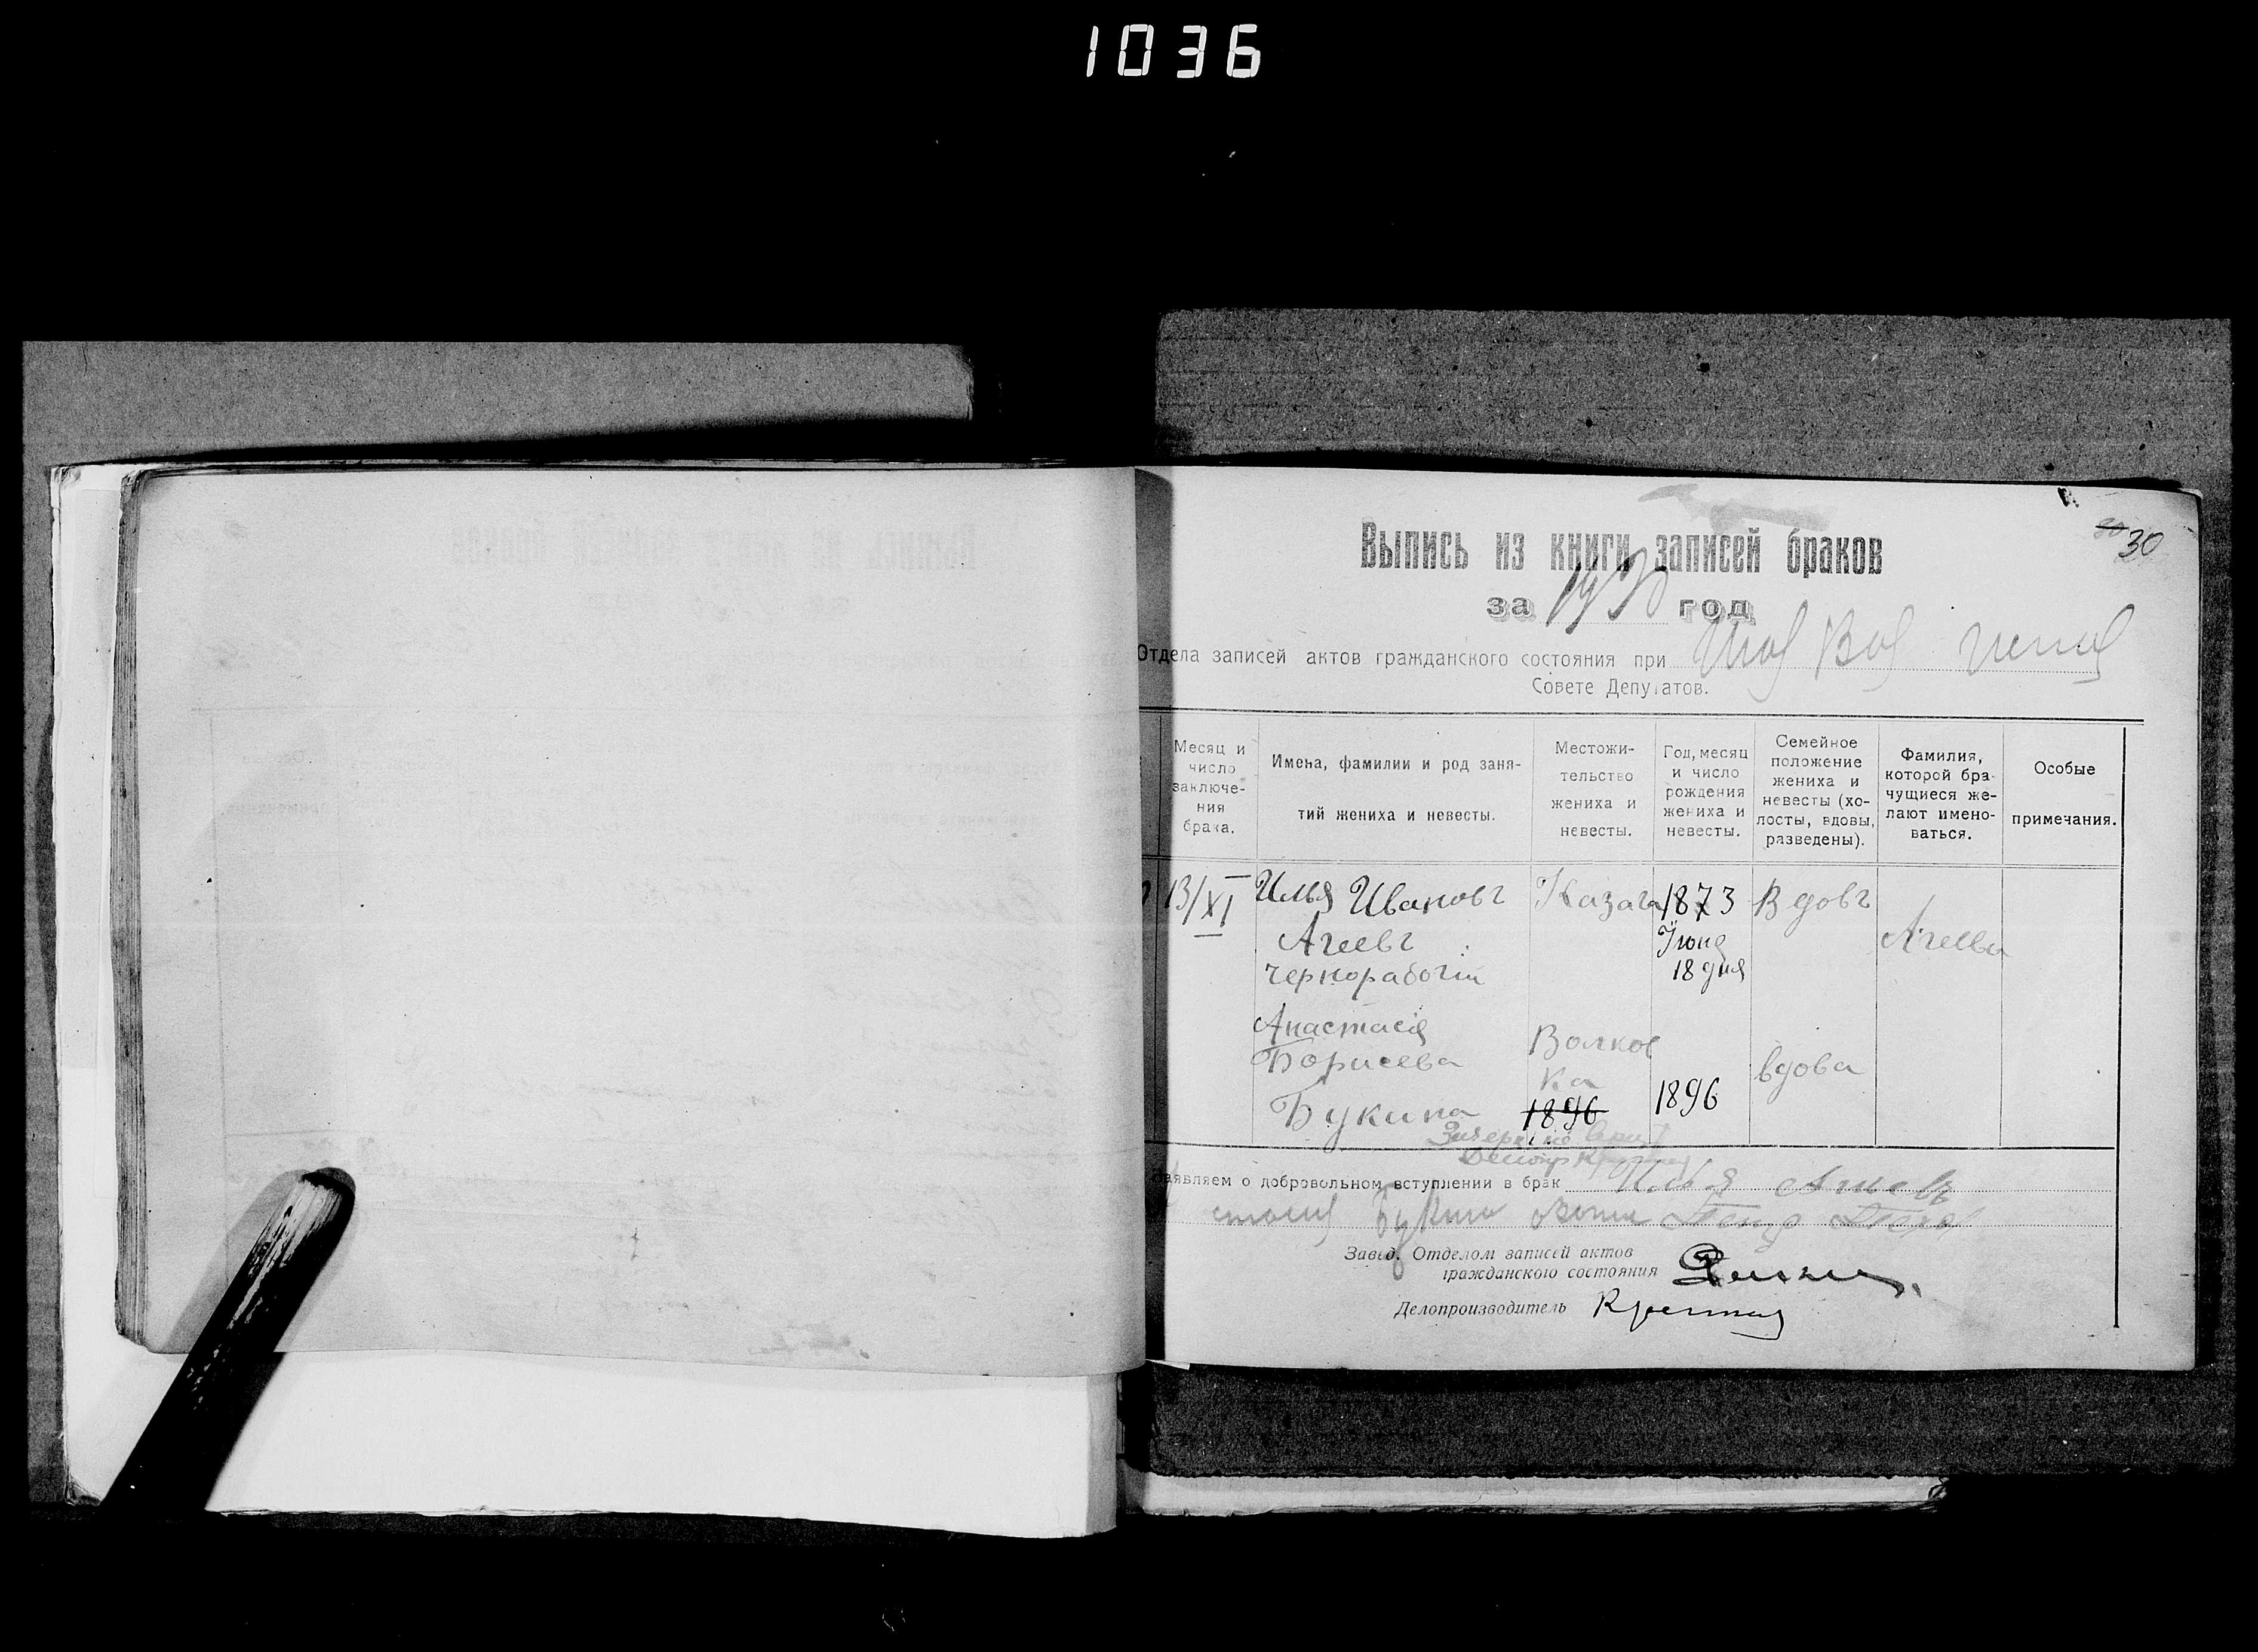 1036
30
Выпись из книги записей браков
за 1920 год
Отдела записей актов гражданского состояния при
Совете Депутатов.
Месяц и число заключения брака.
Имена, фамилии и род занятий жениха и невесты.
Местожительство жениха и невесты.
Год, месяц и число рождения жениха и невесты.
Семейное положение жениха и невесты (холосты, вдовы, разведены).
Фамилия, которой брачущиеся желают именоваться.
Особые примечания.
13/XI Илья Ивановъ 1873 Вдовъ
Агеевъ Июня Агеевы
чернорабочий 18 дня
Анастасия
Борисева Волков
ка вдова
Букина 1896 1896
Заявляем о добровольном вступлении в брак Илья Агеевъ
Завед. Отделом записей актов
гражданского состояния
Делопроизводитель